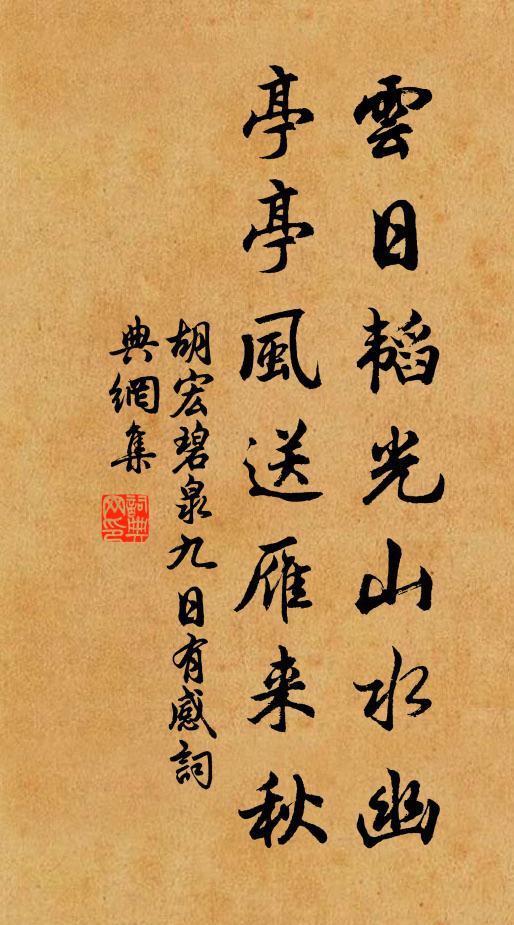 雲日韜光山水幽
亭亭風送雁来秋
胡宏碧泉九日有感詞
典網集
詞典
网印